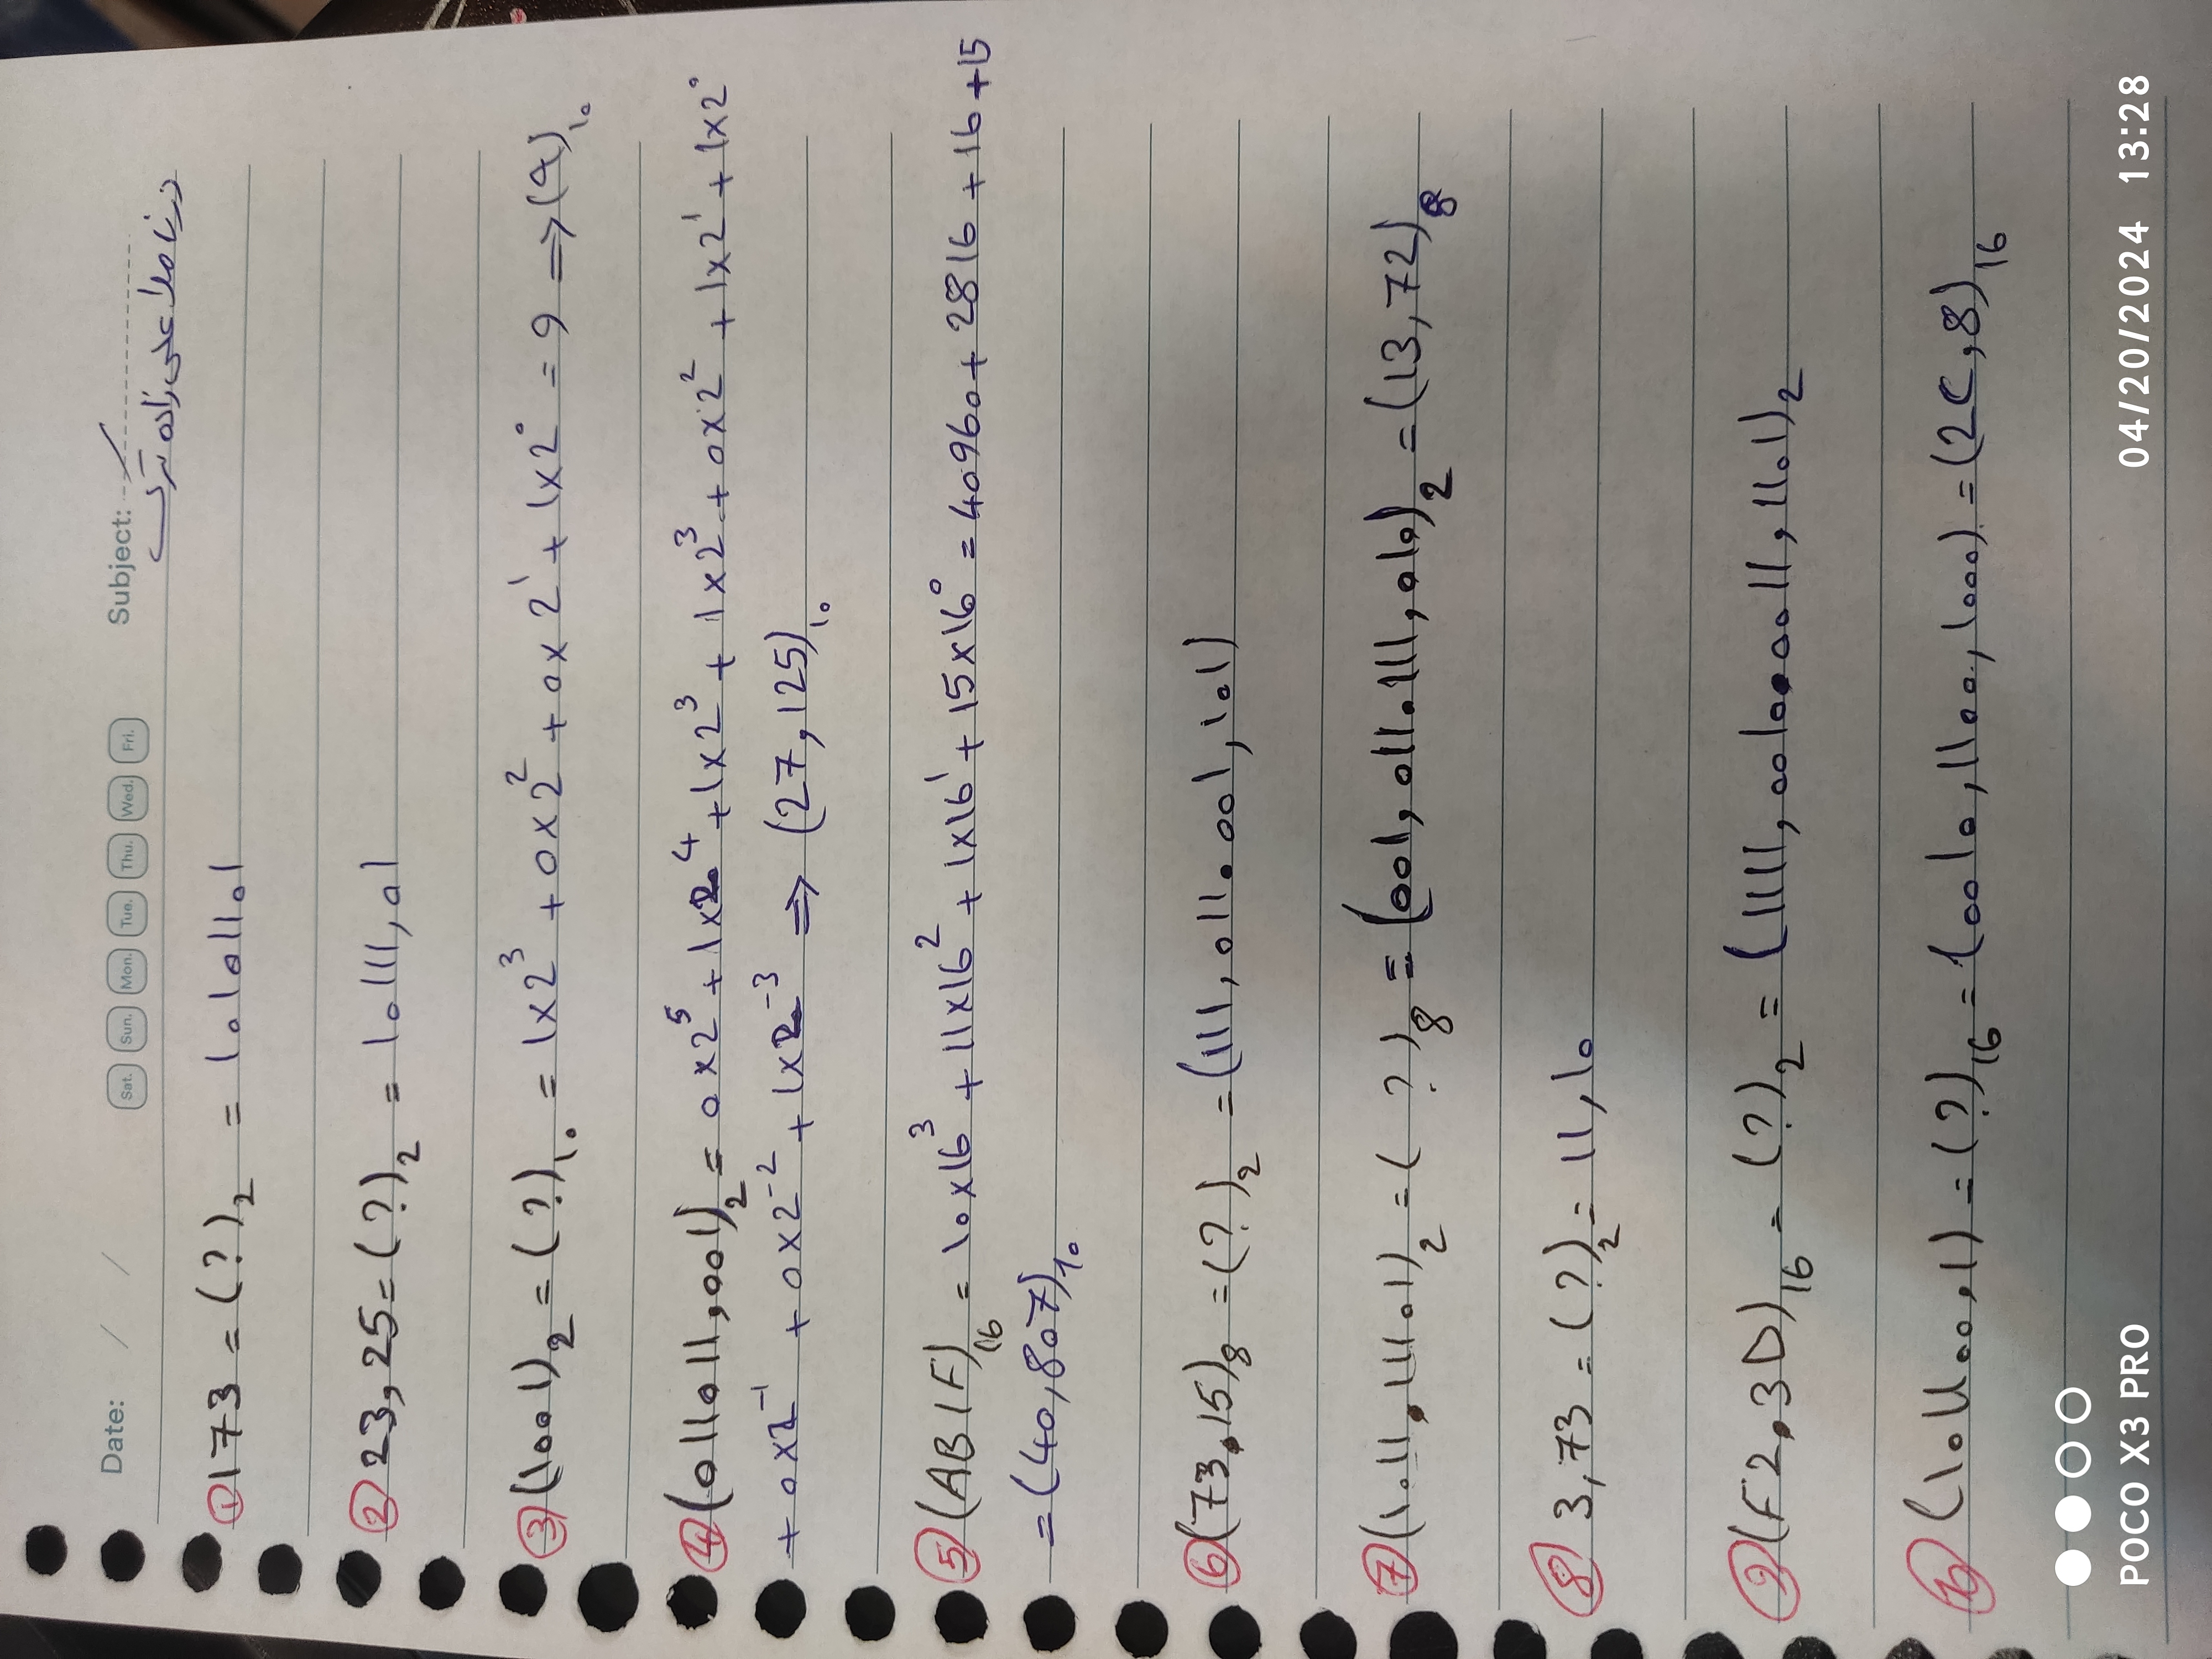 Date: / /
Sat. Sun. Mon. Tue. Thu. Wed. Fri.
Subject:
درنا ملا علی زاده ترک
① 173 = (?)₂ = 10101101
② 23,25 = (?)₂ = 10111,01
③ (1001)₂ = (?)₁₀ = 1×2³ + 0×2² + 0×2¹ + 1×2⁰ = 9 ⇒ (9)₁₀
④ (011011,001)₂ = 0×2⁵ + 1×2⁴ + 1×2³ + 1×2³ + 0×2² + 1×2¹ + 1×2⁰
+ 0×2⁻¹ + 0×2⁻² + 1×2⁻³ ⇒ (27,125)₁₀
⑤ (AB1F)₁₆ = 10×16³ + 11×16² + 1×16¹ + 15×16⁰ = 40960 + 2816 + 16 + 15
= (40,807)₁₀
⑥ (73,15)₈ = (?)₂ = (111,011.001,101)
⑦ (1011,11101)₂ = ( ? )₈ = (001,011.111,010)₂ = (13,72)₈
⑧ 3,73 = (?)₂ = 11,10
⑨ (F2,3D)₁₆ = (?)₂ = (1111,0010.0011,1101)₂
⑩ (101100,1) = (?)₁₆ = (0010,1100,1000) = (2C,8)₁₆
POCO X3 PRO
04/20/2024 13:28